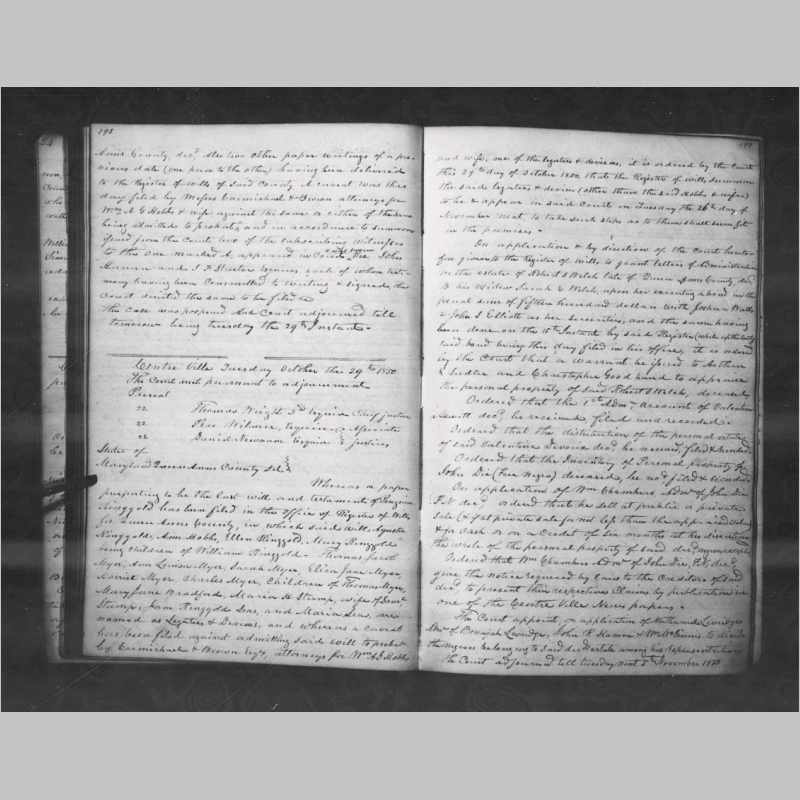 198
Anns County, decd. Also two other paper writings of a pre-
vious date (one prior to the other) having been delivered
to the Register of wills of said County A caveat was this
day filed by Messrs Carmichael & Brown attorneys for
Wm A G Hobbs & wife against the same or either of them
being admitted to probate, and in accordance to summons
issued from this Court, two of the subscribing witnesses
to this One marked A, appeared in Court, John
and J Esquires, each of whom testi-
mony having been Committed to writing & signed, the
Court desired the same to be filed
This Case was postponed And Court adjourned till
tomorrow being tuesday the 29th Instant.
Centre Ville Tuesday October the 29th 1850
The Court met pursuant to adjournment
Present
" Thomas Wright 3d Esquire Chief justice
" Pere Wilmer, Esquire & Associate
" David Newnam Esquire & justices
State of
Maryland Queen Anns County Sct
Whereas a paper
purporting to be the last will and testament of
Ringgold has been filed in the Office of Register of Wills
for Queen Anns County, in which said will,
Ringgold, Ann Hobbs, Ellen Ringgold, Mary Ringgold
being children of William Ringgold. Thomas Jacob
Myer, Ann Louisa Myer, Sarah Myer, Eliza Jane Myer,
Harriet Myer, Charles Myer, Children of Thomas Myer,
Mary Jane Bradford, Maria H Stump, wife of
Stump, Ringgold and Maria are
named as Legatees & Devisees, and whereas a Caveat
has been filed against admitting said will to probate
by Carmichael & Brown Esqrs, attorneys for Wm A G Hobbs
199
and wife, one of the legatees & devisees, it is ordered by the Court
this 29th day of October 1850 that the Register of wills, summon
the said legatees & devisees (other than the said Hobbs & wife)
to be & appear in said Court on Tuesday the 26th day of
November next, to take such steps as to them shall seem fit
in the premises.
On application & by directions of the Court hereto-
fore given to the Register of wills to grant letters of Administration
on the estate of Robert S Welch late of Queen Anns County, decd.
to his widow Sarah E Welch, upon her executing a bond in the
penal sum of fifteen hundred dollars with Joshua
& John S Elliott as her securities, and the same having
been done on the 15th Instant by said Register (while
said bond being this day filed in his office, it is ordered
by the Court that a warrant be issued to Arthur
and Christopher Goodhand to appraise
the personal property of said Robert S Welch, deceased
Ordered that the 1st Admn account of Valentine
decd. be received filed and recorded.
Ordered that the distribution of the personal estate
of said Valentine decd. be received, filed & recorded.
Ordered that the Inventory of Personal property of
John Dix (Free Negro) deceased, be recd. filed & recorded
On application of Wm Chambers Admr. of John Dix
F.N. decd. ordered that he sell at public or private
sale (& if at private sale for not less than the appraised value)
& for Cash or on a Credit of six months at his discretion
the whole of the personal property of said decd.
Ordered that Wm Chambers Admr. of John Dix, F.N. decd.
give the notice required by law to the Creditors of said
decd. to present their respective Claims by publication in
one of the Centre Ville News papers.
The Court appoint, on application of
Admr. of John F and Wm to divide
the Negroes belonging to said decds estate among his representatives
The Court adjourned till tuesday next 5th November 1850